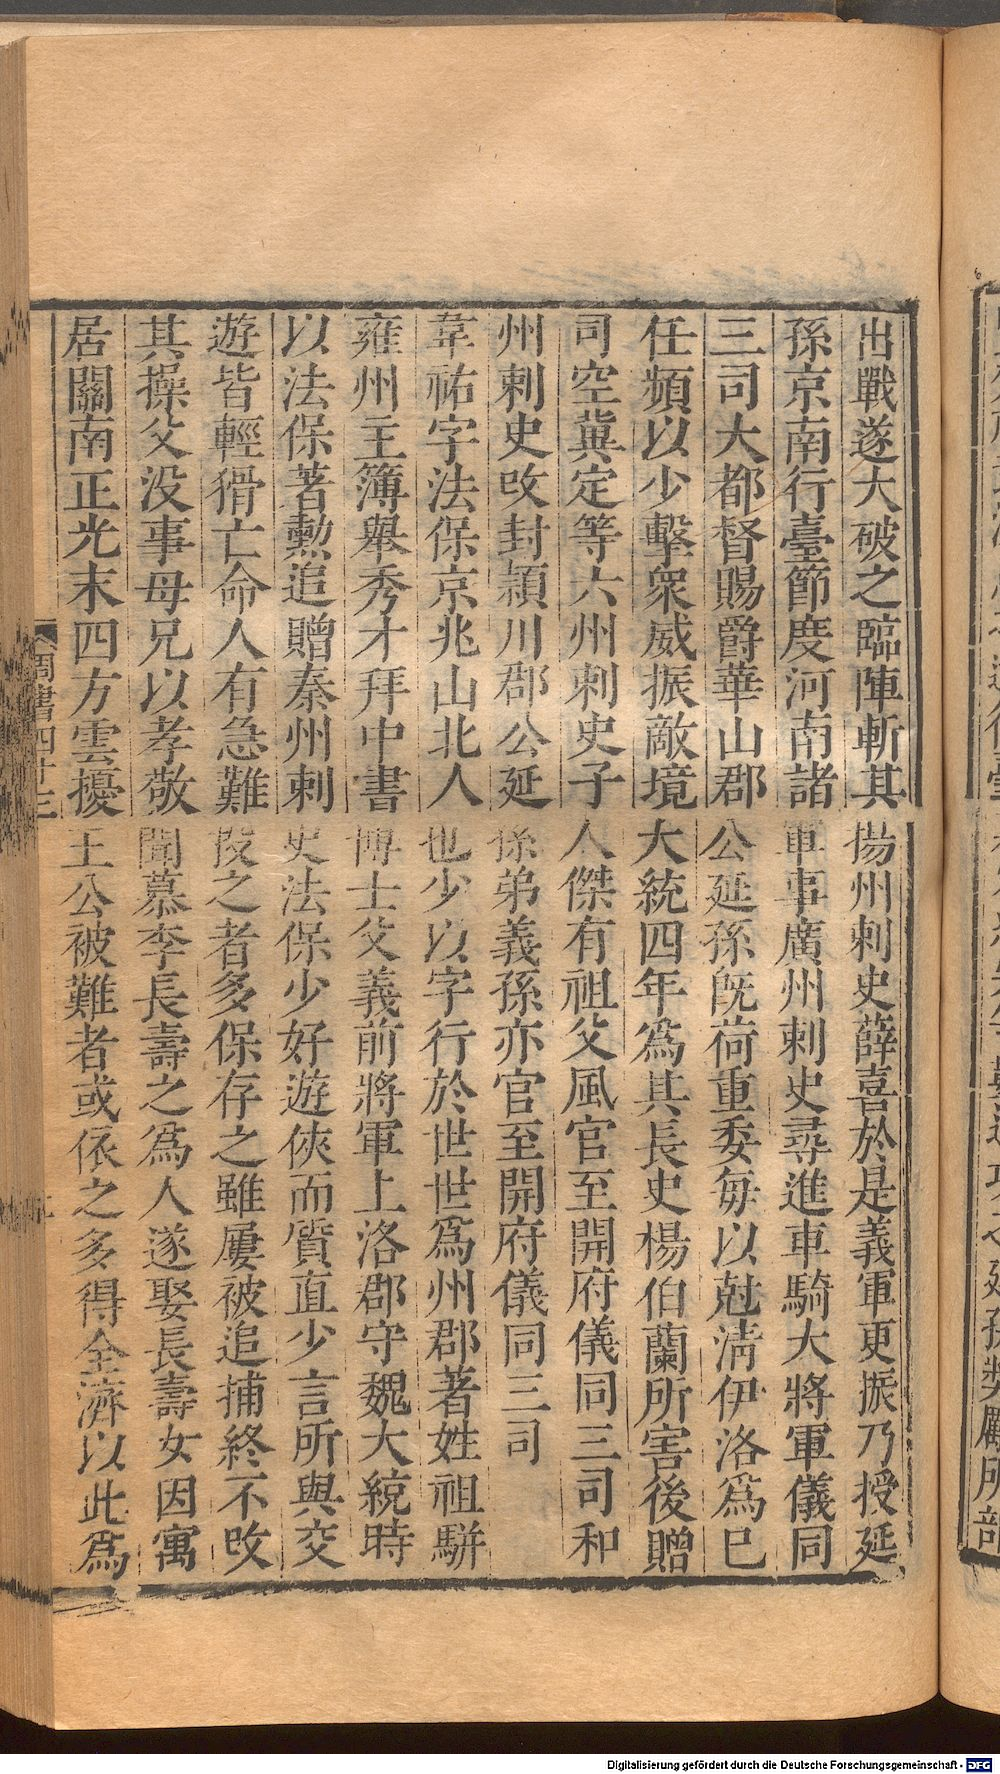 出戰遂大破之臨陣斬其揚州刺史薛喜於是義軍更振乃授延
孫京南行臺節度河南諸軍事廣州刺史尋進車騎大將軍儀同
三司大都督賜爵華山郡公延孫旣荷重委每以尅淸伊洛爲巳
任頻以少擊衆威振敵境大統四年爲其長史楊伯蘭所害後贈
司空冀定等六州刺史子人傑有祖父風官至開府儀同三司和
州刺史改封潁川郡公延孫弟義孫亦官至開府儀同三司
韋祐字法保京兆山北人也少以字行於世世爲州郡著姓祖駢
雍州主簿舉秀才拜中書博士父義前將軍上洛郡守魏大統時
以法保著勲追贈秦州刺史法保少好遊俠而質直少言所與交
遊皆輕猾亡命人有急難投之者多保存之雖屢被追捕終不改
其操父没事母兄以孝敬聞慕李長壽之爲人遂娶長壽女因寓
居關南正光末四方雲擾王公被難者或依之多得全濟以此爲
周書四十三
Digitalisierung gefördert durch die Deutsche Forschungsgemeinschaft - DFG